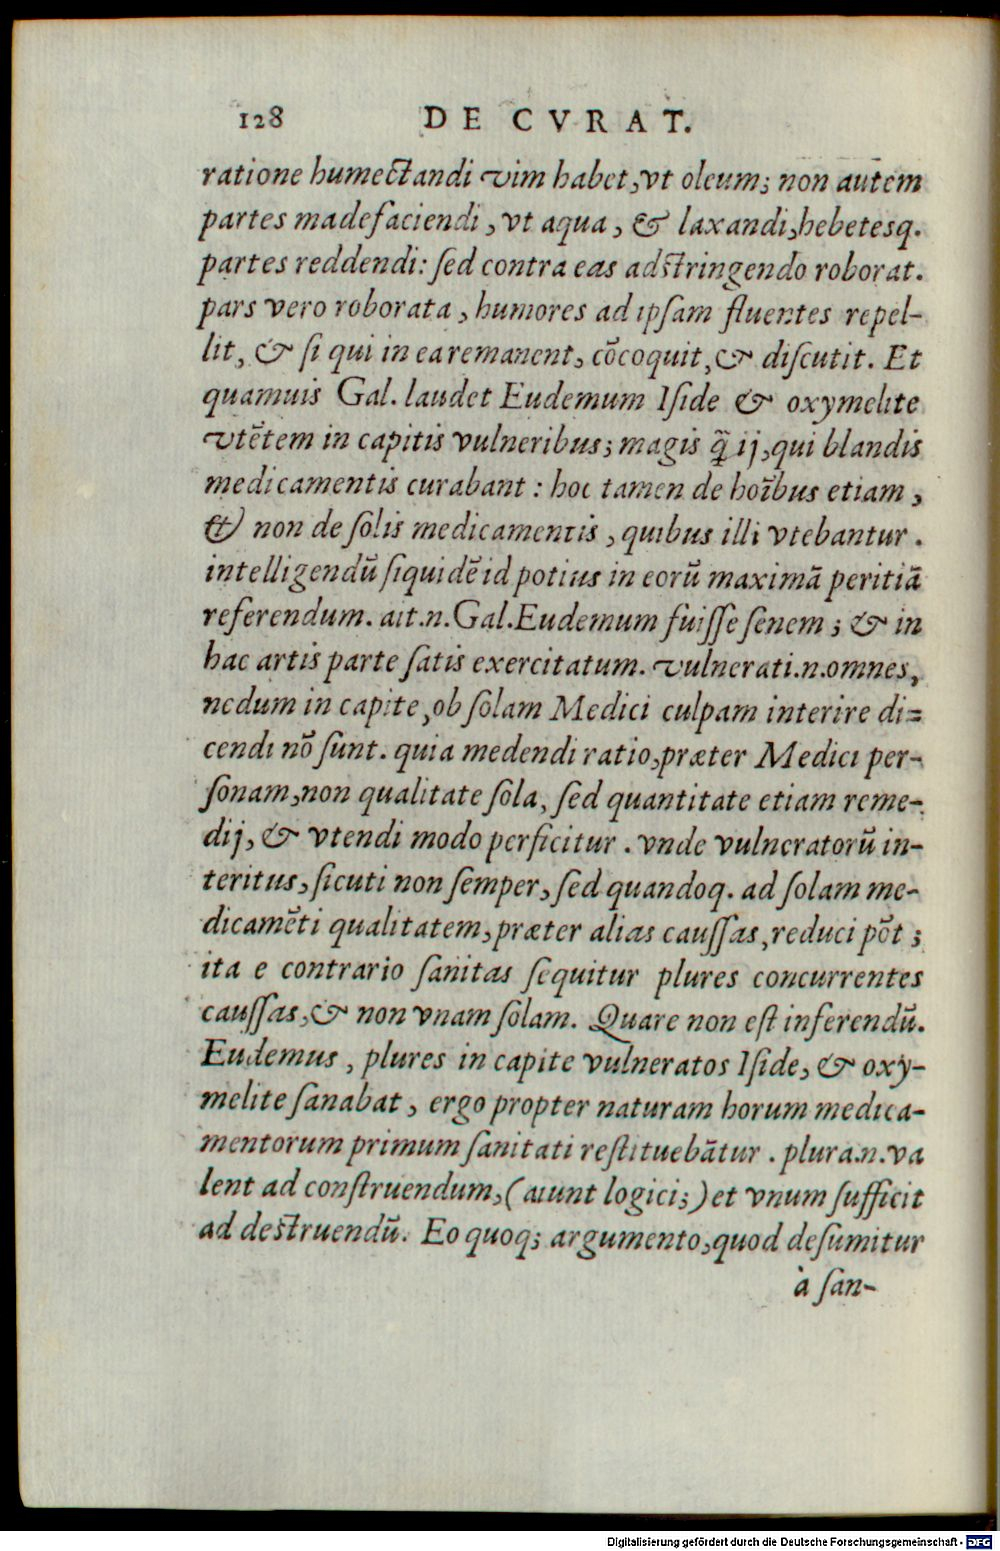 128 DE CVRAT.
ratione humectandi vim habet, vt oleum; non autem
partes madefaciendi, vt aqua, & laxandi, hebetesq.
partes reddendi: ſed contra eas adſtringendo roborat.
pars vero roborata, humores ad ipſam fluentes repel-
lit, & ſi qui in ea remanent, cōcoquit, & diſcutit. Et
quamuis Gal. laudet Eudemum Iſide & oxymelite
vtētem in capitis vulneribus; magis q̃ ij, qui blandis
medicamentis curabant: hoc tamen de hoībus etiam,
& non de ſolis medicamentis, quibus illi vtebantur.
intelligendū ſiquidē id potius in eorū maximā peritiā
referendum. ait.n.Gal.Eudemum fuiſſe ſenem; & in
hac artis parte ſatis exercitatum. vulnerati.n.omnes,
nedum in capite, ob ſolam Medici culpam interire di=
cendi nō ſunt. quia medendi ratio, præter Medici per-
ſonam, non qualitate ſola, ſed quantitate etiam reme-
dij, & vtendi modo perficitur. vnde vulneratorū in-
teritus, ſicuti non ſemper, ſed quandoq. ad ſolam me-
dicamēti qualitatem, præter alias cauſſas, reduci pōt;
ita e contrario ſanitas ſequitur plures concurrentes
cauſſas, & non vnam ſolam. Quare non eſt inferendū.
Eudemus, plures in capite vulneratos Iſide, & oxy-
melite ſanabat, ergo propter naturam horum medica-
mentorum primum ſanitati reſtituebātur. plura.n.va
lent ad conſtruendum, (aiunt logici;) et vnum ſufficit
ad deſtruendū. Eo quoq; argumento, quod deſumitur
à ſan-
Digitalisierung gefördert durch die Deutsche Forschungsgemeinschaft - DFG